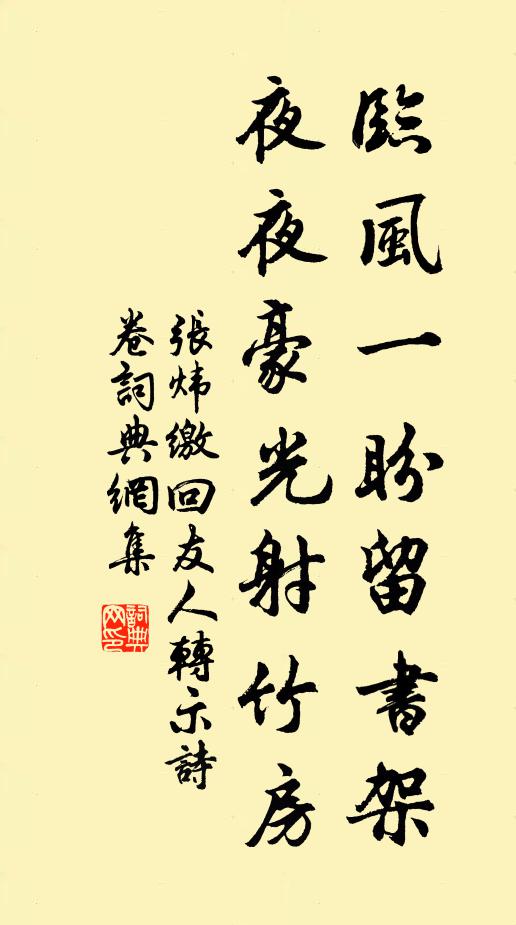 臨風一盼留書架
夜夜豪光射竹房
張煒繳回友人轉示詩
卷詞典網集
詞典
网印